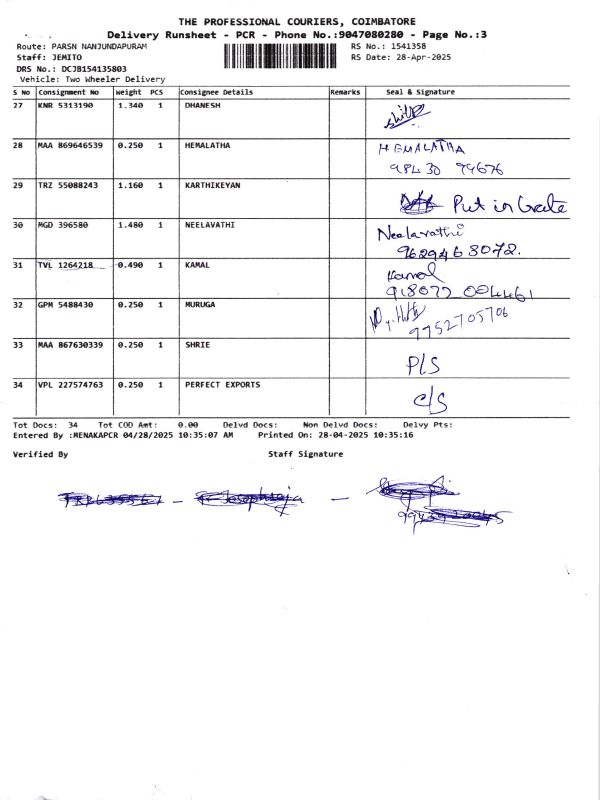 THE PROFESSIONAL COURIERS, COIMBATORE
Delivery Runsheet - PCR - Phone No.:9047080280 - Page No.:3
Route: PARSN NANJUNDAPURAM RS No.: 1541358
Staff: JEMITO RS Date: 28-Apr-2025
DRS No.: DCJB154135803
Vehicle: Two Wheeler Delivery
S No Consignment No Weight PCS Consignee Details Remarks Seal & Signature
27 KNR 5313190 1.340 1 DHANESH
28 MAA 869646539 0.250 1 HEMALATHA HEMALATHA
98430 99676
29 TRZ 55088243 1.160 1 KARTHIKEYAN Put in Gate
30 MGD 396580 1.480 1 NEELAVATHI Neelavathi
9629463072.
31 TVL 1264218 0.490 1 KAMAL Kamal
32 GPM 5488430 0.250 1 MURUGA
9952705706
33 MAA 867630339 0.250 1 SHRIE P/S
34 VPL 227574763 0.250 1 PERFECT EXPORTS C/S
Tot Docs: 34 Tot COD Amt: 0.00 Delvd Docs: Non Delvd Docs: Delvy Pts:
Entered By :MENAKAPCR 04/28/2025 10:35:07 AM Printed On: 28-04-2025 10:35:16
Verified By Staff Signature